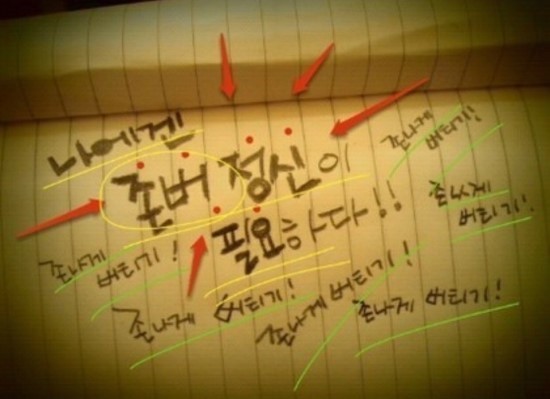 나에겐
존버 정신이
필요하다!!
존나게
버티기!
존나게
버티기!
존나게
버티기!
존나게 버티기!
존나게 버티기!
존나게 버티기!